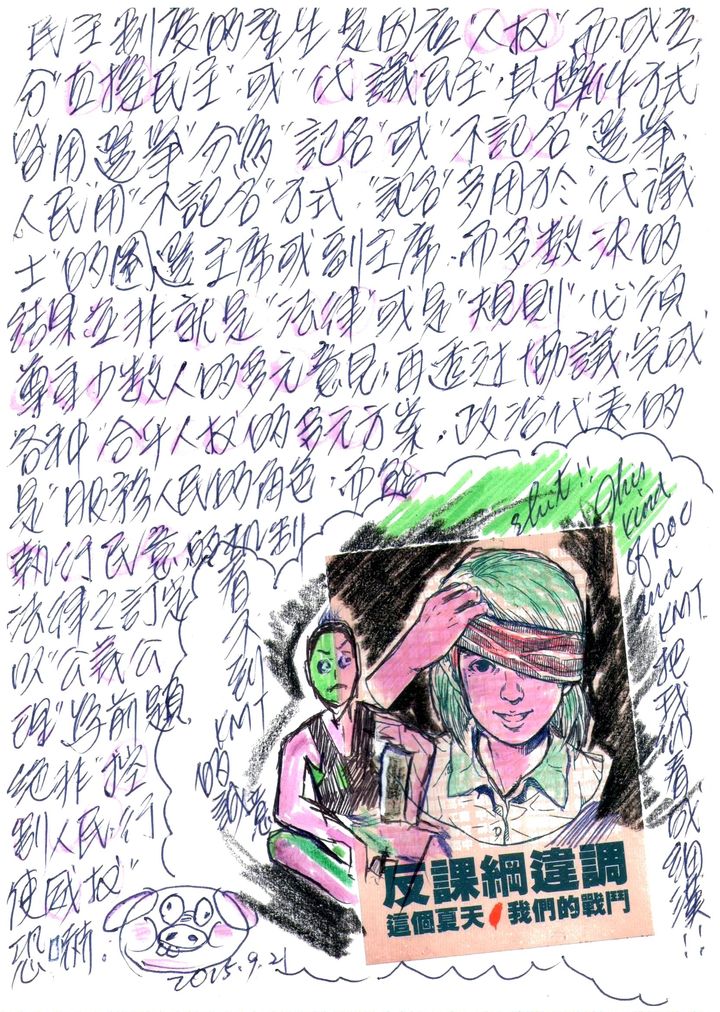 民主制度的產生是因在"人权"而成立
分"直接民主"或"代議民主",其操作方式
皆用選舉"分為"記名"或"不記名"選舉,
人民用"不記名"方式,"記名"多用於"代議
士"的圈選主席或副主席,而多数決的
結果並非就是"法律"或是"規則",必須
尊重少数人的多元意見,再透过協議,完成
各种"合乎人权"的多元方案,政治代表的
是"服務人民"的角色,而
執行民意的机制
法律之訂定
以"公義公
理"為前題
絕非"控
制人民,行
使威权"
恐嚇.
2015.9.21
看不到KMT的誠意
shit!! This kind of ROC and KMT把我們看成
反課綱違調
這個夏天 我們的戰鬥